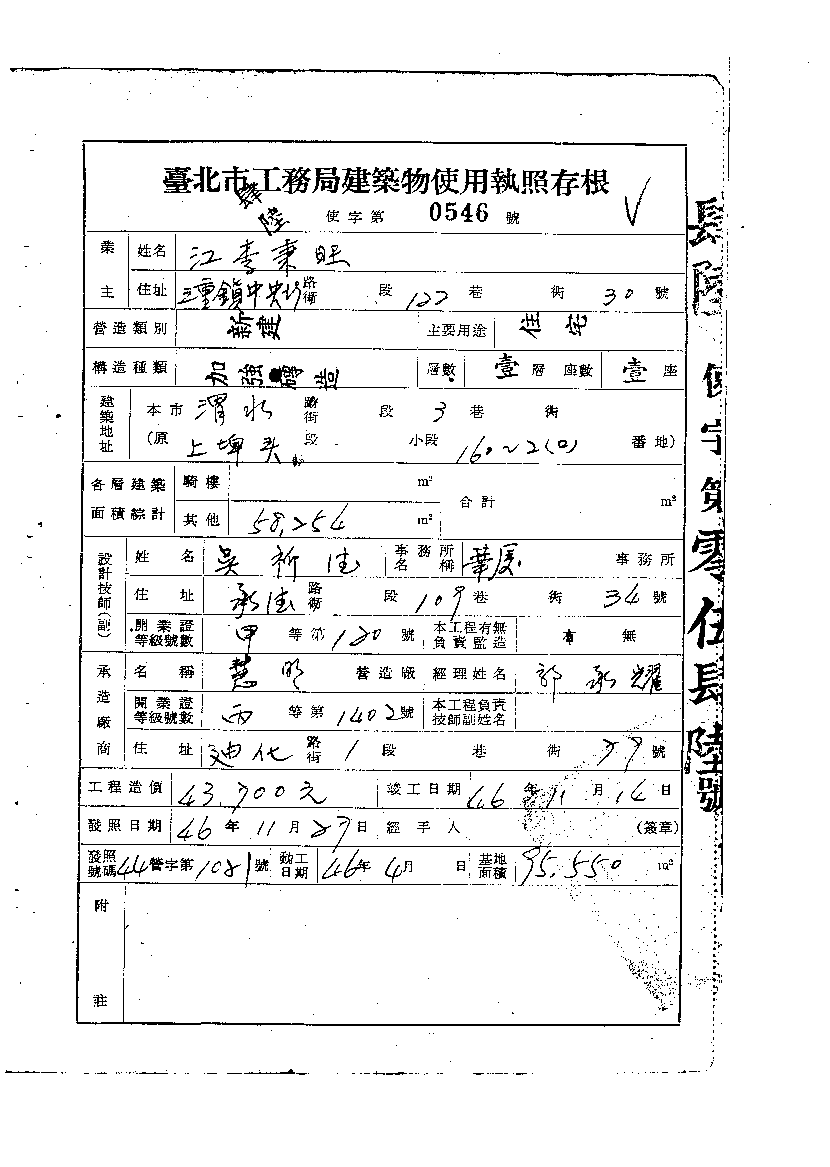 臺北市工務局建築物使用執照存根
肆陸 使字第 0546 號
業主 姓名 江李秉旺
住址 三重鎮中央北 路街 段 122 巷 衖 30 號
營造類別 新建 主要用途 住宅
構造種類 加強磚造 層數 壹 層 座數 壹 座
建築地址 本市 渭水 路街 段 3 巷 衖
(原 上埤头 段 小段 160~2(口) 番地)
各層建築面積綜計 騎樓 m² 合計 m²
其他 58,254 m²
設計技師(副) 姓名 吳新 事務所名稱 華厦 事務所
住址 承德 路街 段 109 巷 衖 34 號
開業證等級號數 甲 等第 120 號 本工程有無負責監造 有 無
承造廠商 名稱 慧明 營造廠 經理姓名 郭承耀
開業證等級號數 丙 等第 1402 號 本工程負責技師副姓名
住址 迪化 路街 1 段 巷 衖 號
工程造價 43,700元 竣工日期 46 年 11 月 14 日
發照日期 46 年 11 月 27 日 經手人 (簽章)
發照號碼 44 營字第 1081 號 動工日期 46 年 4 月 日 基地面積 95.550 m²
附註
肆陸使字第零伍肆陸號